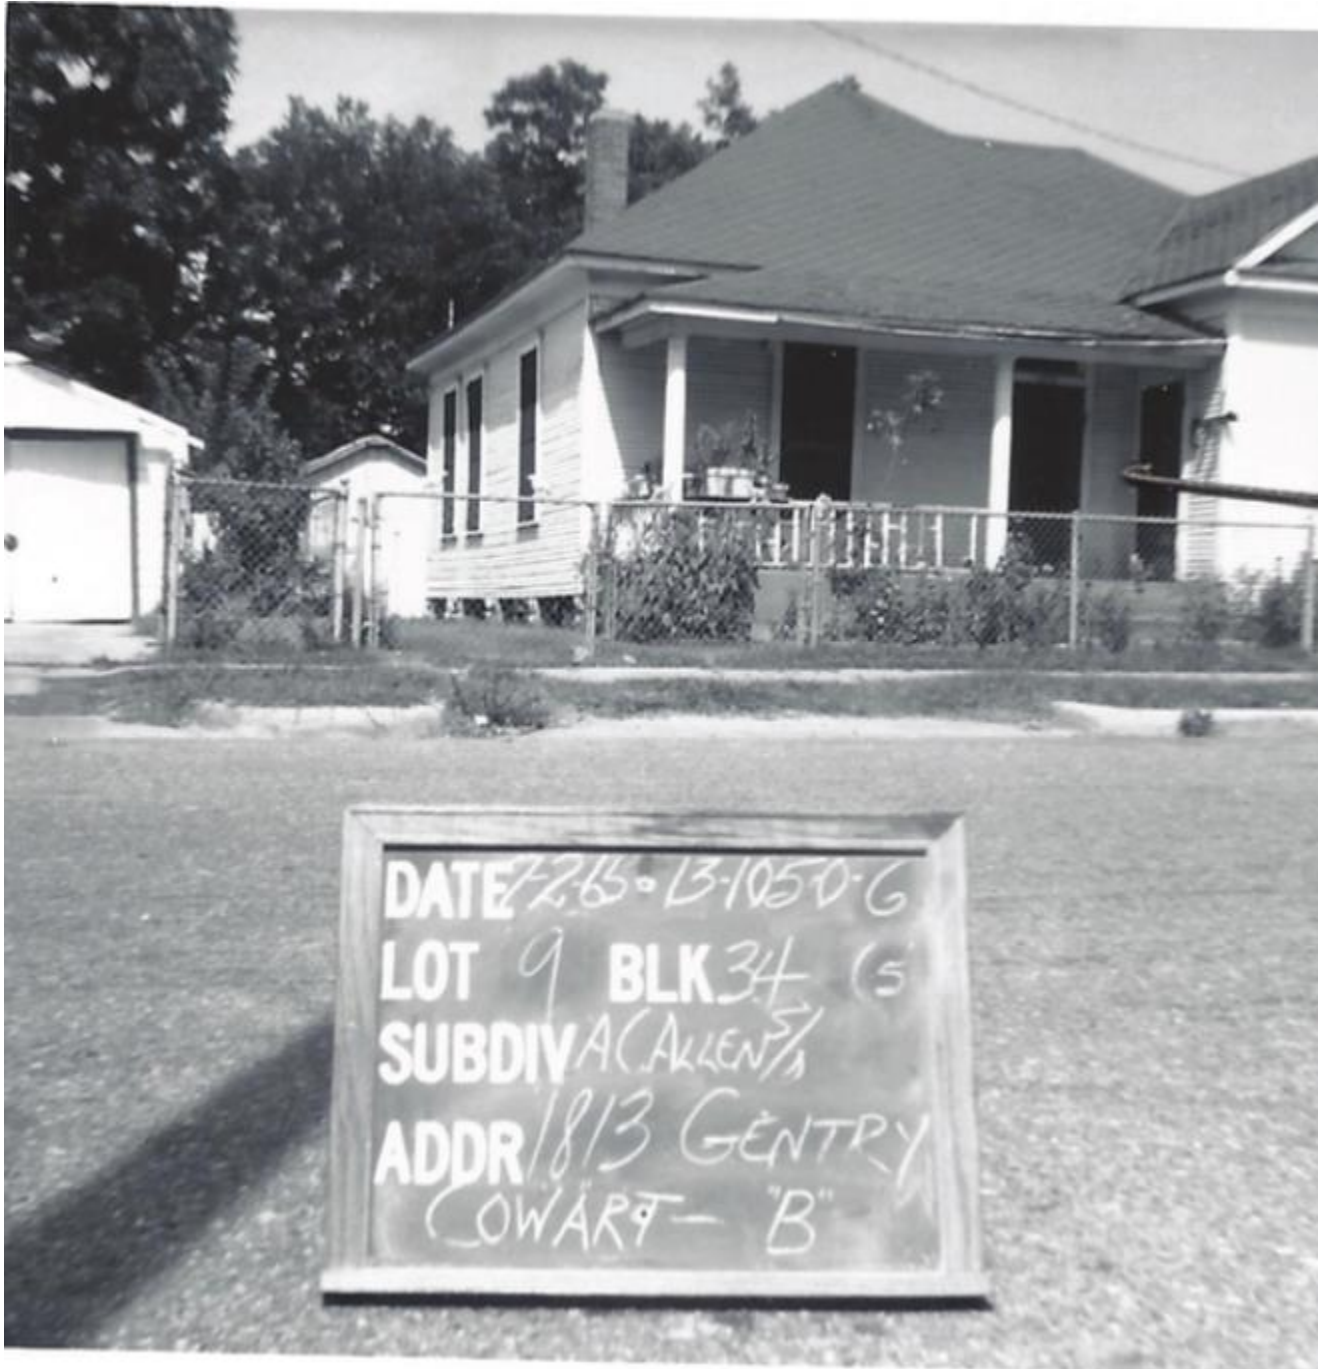 DATE 7-2-65 - 13-105-0-6
LOT 9 BLK 34 (5
SUBDIV A C ALLEN
ADDR 1813 GENTRY
COWART - "B"